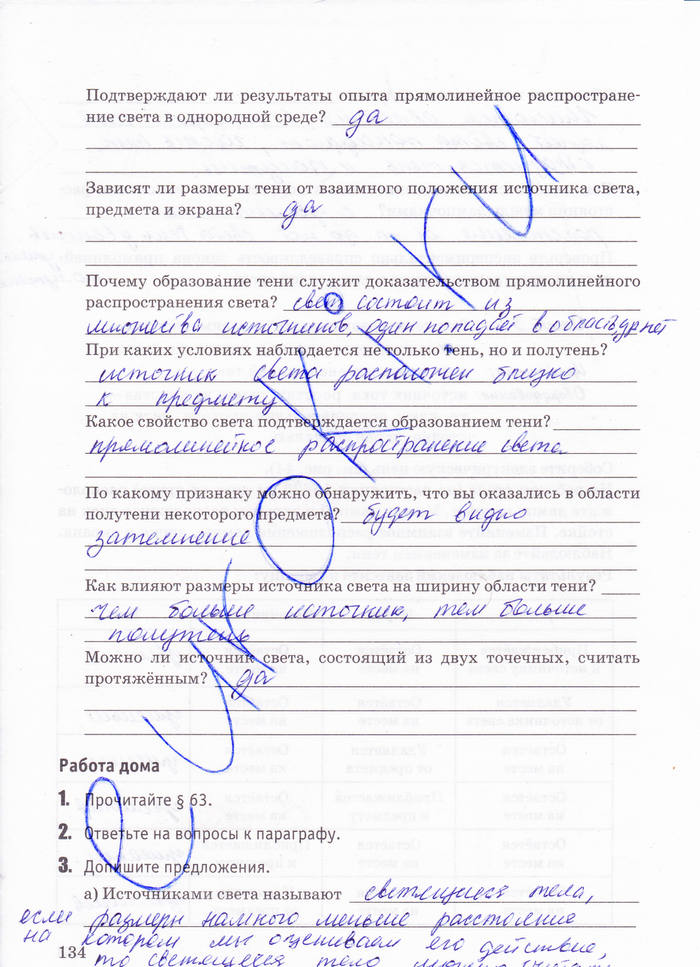 Подтверждают ли результаты опыта прямолинейное распростране-
ние света в однородной среде? да
Зависят ли размеры тени от взаимного положения источника света,
предмета и экрана? да
Почему образование тени служит доказательством прямолинейного
распространения света? свет состоит из
множества источников, один попадает в область, др нет
При каких условиях наблюдается не только тень, но и полутень?
источник света расположен близко
к предмету
Какое свойство света подтверждается образованием тени?
прямолинейное распространение света
По какому признаку можно обнаружить, что вы оказались в области
полутени некоторого предмета? будет видно
затемнение
Как влияют размеры источника света на ширину области тени?
чем больше источник, тем больше
полутень
Можно ли источник света, состоящий из двух точечных, считать
протяжённым? да
Работа дома
1. Прочитайте § 63.
2. Ответьте на вопросы к параграфу.
3. Допишите предложения.
а) Источниками света называют светящиеся тела,
если размеры намного меньше расстояние
на котором мы оцениваем его действие,
134 то светящееся тело можно считать